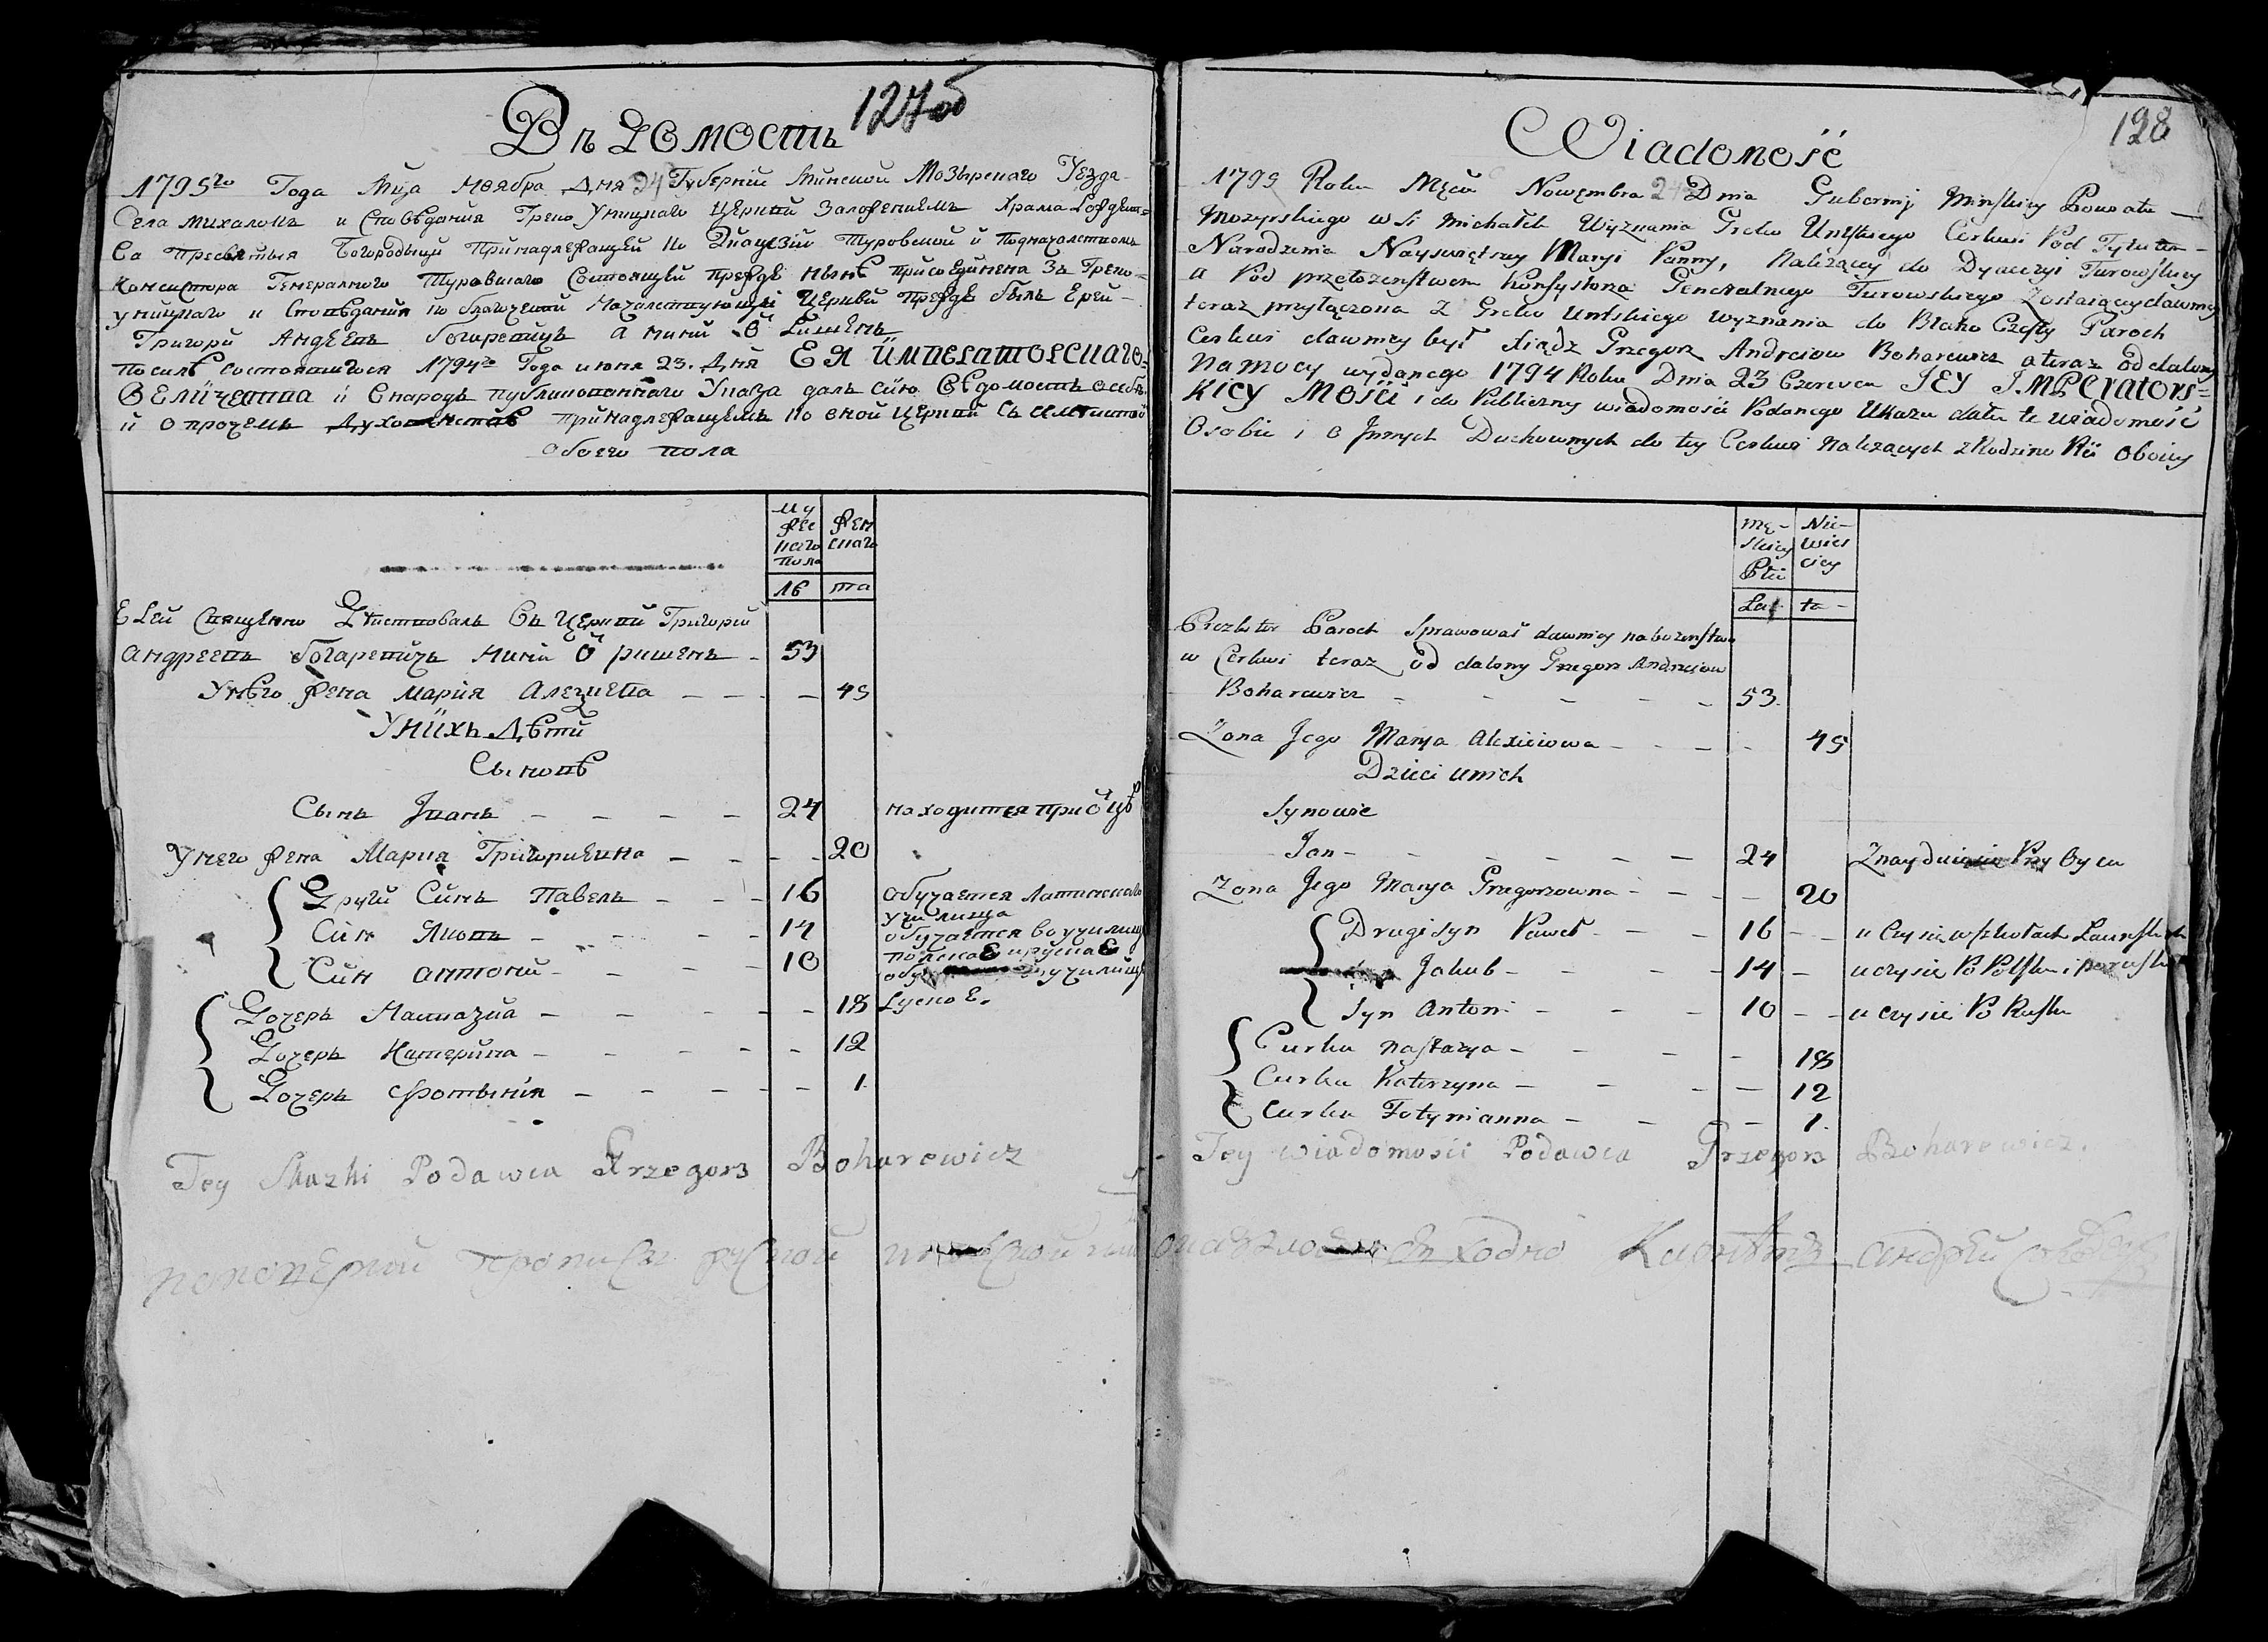 127об
Вѣдомость
1795го Года Мца Ноября Дня 24 Губернїи Минской Мозырскаго Уезда
Села михалокъ и Сповѣдания Греко Уницкаго Церкви Заложениемъ Храма Рождест=
ва пресвятыя Богородыци Принадлежащей ко Диоцезїи Туровской и Подначалством
Консистора Генералного Туровскаго Состоящей прежде нынѣ присоединена Зъ Греко=
уницкаго и Споведания ко благочестй Началствующеі Церкви прежде былъ Ерей
Григорй Андѣевъ Богаревичъ А нинй Ӧ Ришенъ
посилѣ Состоявшагося 1794го Года июня 23. Дня ЕЯ ИМПЕРАТОРСКАГО
ВЕЛИЧЕСТВА и Внародъ публикованнаго Указа далъ сию Вѣдомость о себѣ
и о прочемъ Духовенствѣ принадлежащемъ ко оной Церкви Съ
обоего пола
му
жес
каго
пола
жен
скаго
лѣ
та
Ерей Священно Дѣйствовалъ Въ Церкви Григорй
Андреевъ Богаревичъ Нинй Ӧ ришенъ 53
Унѣго жена Мария Алезиева 45
Унихъ Дѣти
Сыновѣ
Сынъ Іванъ 24 находится при Ӧцѣ
Унего жена Мария Григориевна 20
Други Синъ Павелъ 16 обучается Латинскаго
училища
Син Яковъ 14 обучается во училищ
полскаѣ ирускаѣ
Син Антоний 10 училищ
Дочерь Настазиа 18 Руское.
Дочерь Катерина 12
Дочерь Фотыния 1
Tey Skazki Podawca Grzegorz Boharewicz
128
Wiadomość
1795 Roku Męca Nowembra 24 Dnia Gubernij Minskiey Powiatu
Mozyrskiego w Si Michałek Wyznania Greko Unitskiego Cerkwi Pod Tytułem
Narodzenia Nayswiętszey Maryi Panny, Należącey do Dyecezyi Turowskiey
a Pod przełożenstwem Konsystorza Generalnego Turowskiego Zostaiącey dawniey
teraz przyłączona Z Greko Unitskiego wyznania do Blaho Czesty Paroch
Cerkwi dawniey był xiądz Grzegorz Andreiow Boharewicz a teraz oddalony
Na mocy wydanego 1794 Roku Dnia 23 Czerwca JEY IMPERATORS=
KIEY MOŚCI i do Publiczney wiadomości Podanego Ukazu dałem te wiadomość
Osobie i o Innych Duchownych do tey Cerkwi Należących z Rodzino Płci oboiey
Mę-
skiey
Płci
Nie-
wies
ciey
La-
ta-
Prezbiter Paroch Sprawował dawniey nabożenstwo
w Cerkwi teraz oddalony Grzegorz Andreiow
Boharewicz 53
Zona Jego Marya Alexieiowa 45
Dzieci unich
Synowie
Jan 24 Znayduiesie Przy Oycu
Zona Jego Marya Gregorzowna 20
Drugi Syn Paweł 16 uczysie w szkołach
Jakub 14 uczysie Po Polsku i poruski
Syn Antoni 10 uczysie Po Rusku
Curka Nastazya 18
Curka Katerzyna 12
Curka Fotynianna 1.
Tey wiadomosći Podawca Grzegorz Boharewicz.
андрей